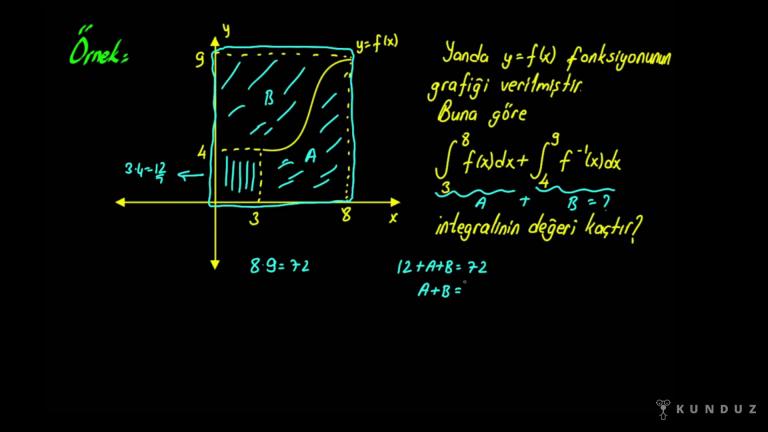 Örnek=
y
y=f(x)
9
B
4
A
3·4=12
3
8
x
Yanda y=f(x) fonksiyonunun
grafiği verilmiştir.
Buna göre
∫₃⁸ f(x)dx + ∫₄⁹ f⁻¹(x)dx
A + B = ?
integralinin değeri kaçtır?
8·9=72
12+A+B=72
A+B=
KUNDUZ